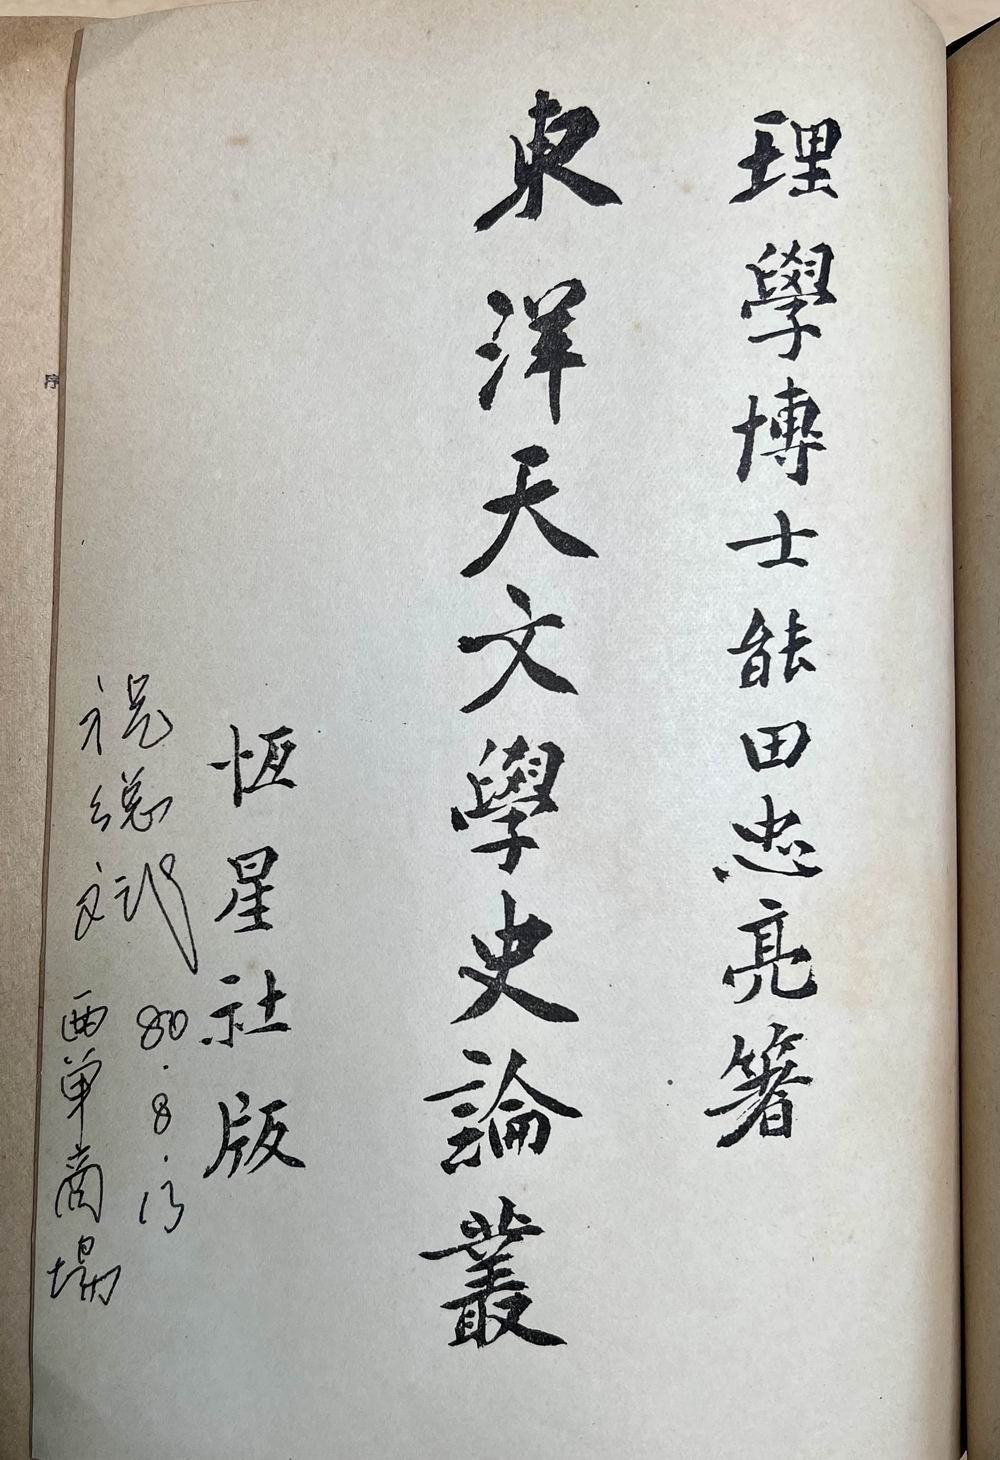 理學博士能田忠亮著
東洋天文學史論叢
恆星社版
80.8.13
西单商場
序